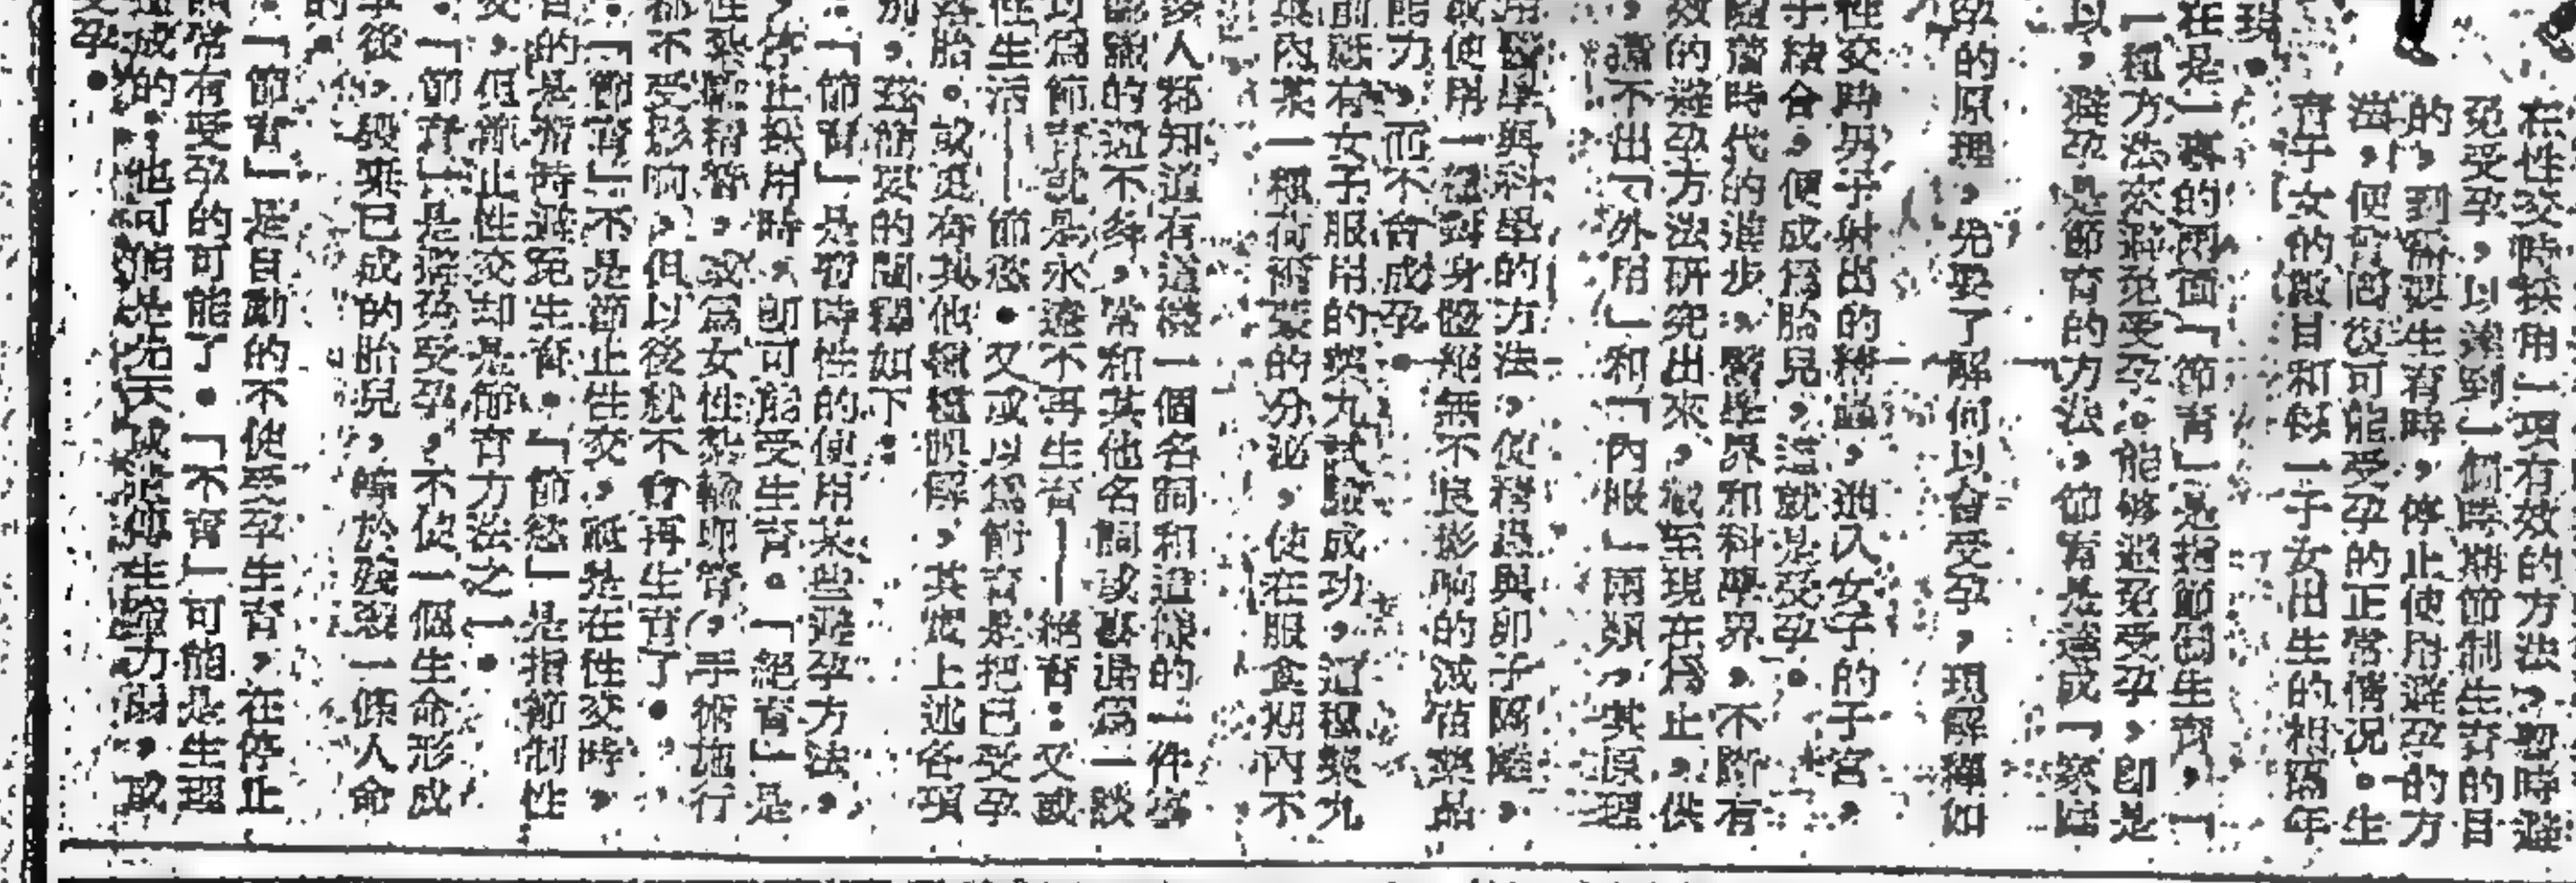 在性交時採用一項有效的方法，暫時避
免受孕，以達到一個時期節制生育的目
的，到需要生育時，停止使用避孕的方
法，便會回復可能受孕的正常情況。生
育子女的數目和每一子女出生的相隔年
現。
在是一事的兩面「節育」是指節制生育，「
一種方法來避免受孕。能够避免受孕，即是
以，避孕是節育的方法，節育是達成「家庭
孕的原理，先要了解何以會受孕，現解釋如
性交時男子射出的精蟲，進入女子的子宮，
子結合，便成爲胎兒，這就是受孕。
隨着時代的進步，醫學界和科學界，不斷有
效的避孕方法研究出來，截至現在爲止，供
，還不出「外用」和「內服」兩類，其原理
用醫學與科學的方法，使精蟲與卵子隔離，
或使用一種對身體絕無不良影响的減苗藥品
能力，而不會成孕。
前還有女子服用的藥丸試驗成功，這種藥丸
某內某一種荷爾蒙的分泌，使在服食期內不
多人都知道有這樣一個名詞和這樣的一件事
認識的還不夠，常和其他名詞或事混爲一談
以爲節育就是永遠不再生育——絕育：又或
性生活——節慾。又或以爲節育是把已受孕
落胎。或更有其他種種誤解，其實上述各項
別，茲簡要的闡釋如下：
「節育」是暫時性的使用某些避孕方法，
，停止採用時，即可能受生育。「絕育」是
性紮輸精管，或爲女性紮輸卵管，手術施行
都不受影响，但以後就不會再生育了。
「節育」不是節止性交，祇是在性交時，
目的是暫時避免生育。「節慾」是指節制性
交，但節止性交却是節育方法之一。
「節育」是避免受孕，不使一個生命形成
孕後，毁壞已成的胎兒，等於殘殺一條人命
的。
「節育」是自動的不使受孕生育，在停止
時常有受孕的可能了。「不育」可能是生理
造成的：他可能是先天或後使生殖力弱，或
受孕。